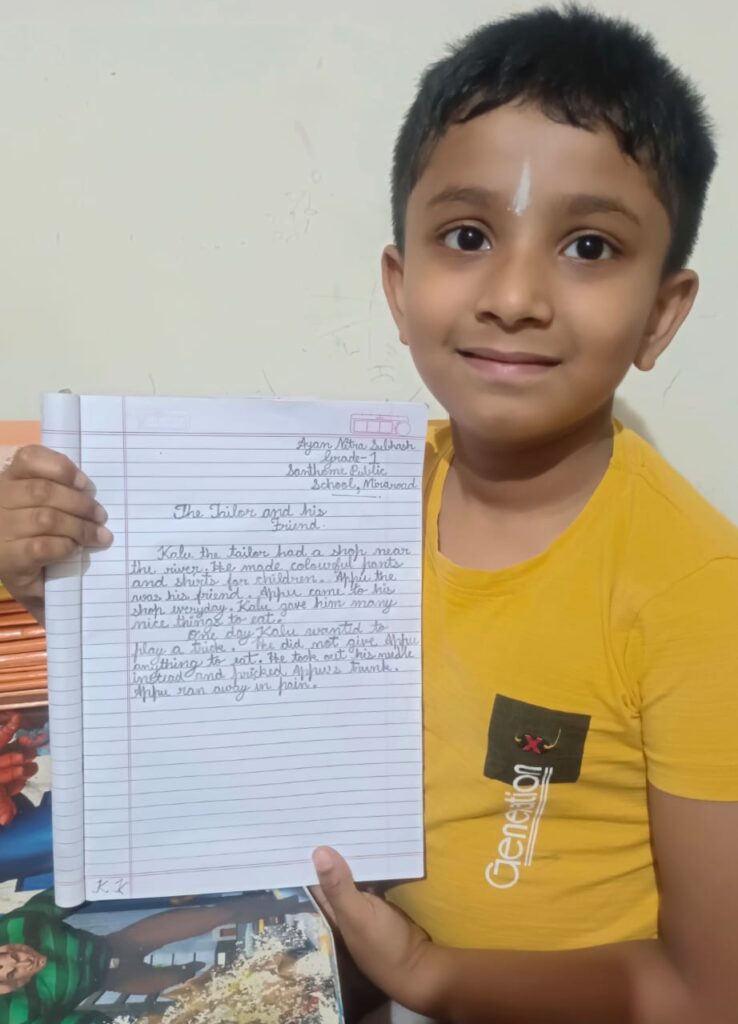 Ayan Nitra Subhash
Grade-1
Santhome Public
School, Miraroad
The Tailor and his
Friend.
Kalu the tailor had a shop near
the river. He made colourful pants
and shirts for children. Appu the
was his friend. Appu came to his
shop everyday. Kalu gave him many
nice things to eat.
One day Kalu wanted to
play a trick. He did not give Appu
anything to eat. He took out his needle
instead and pricked Appu's trunk.
Appu ran away in pain.
K.K
Generation